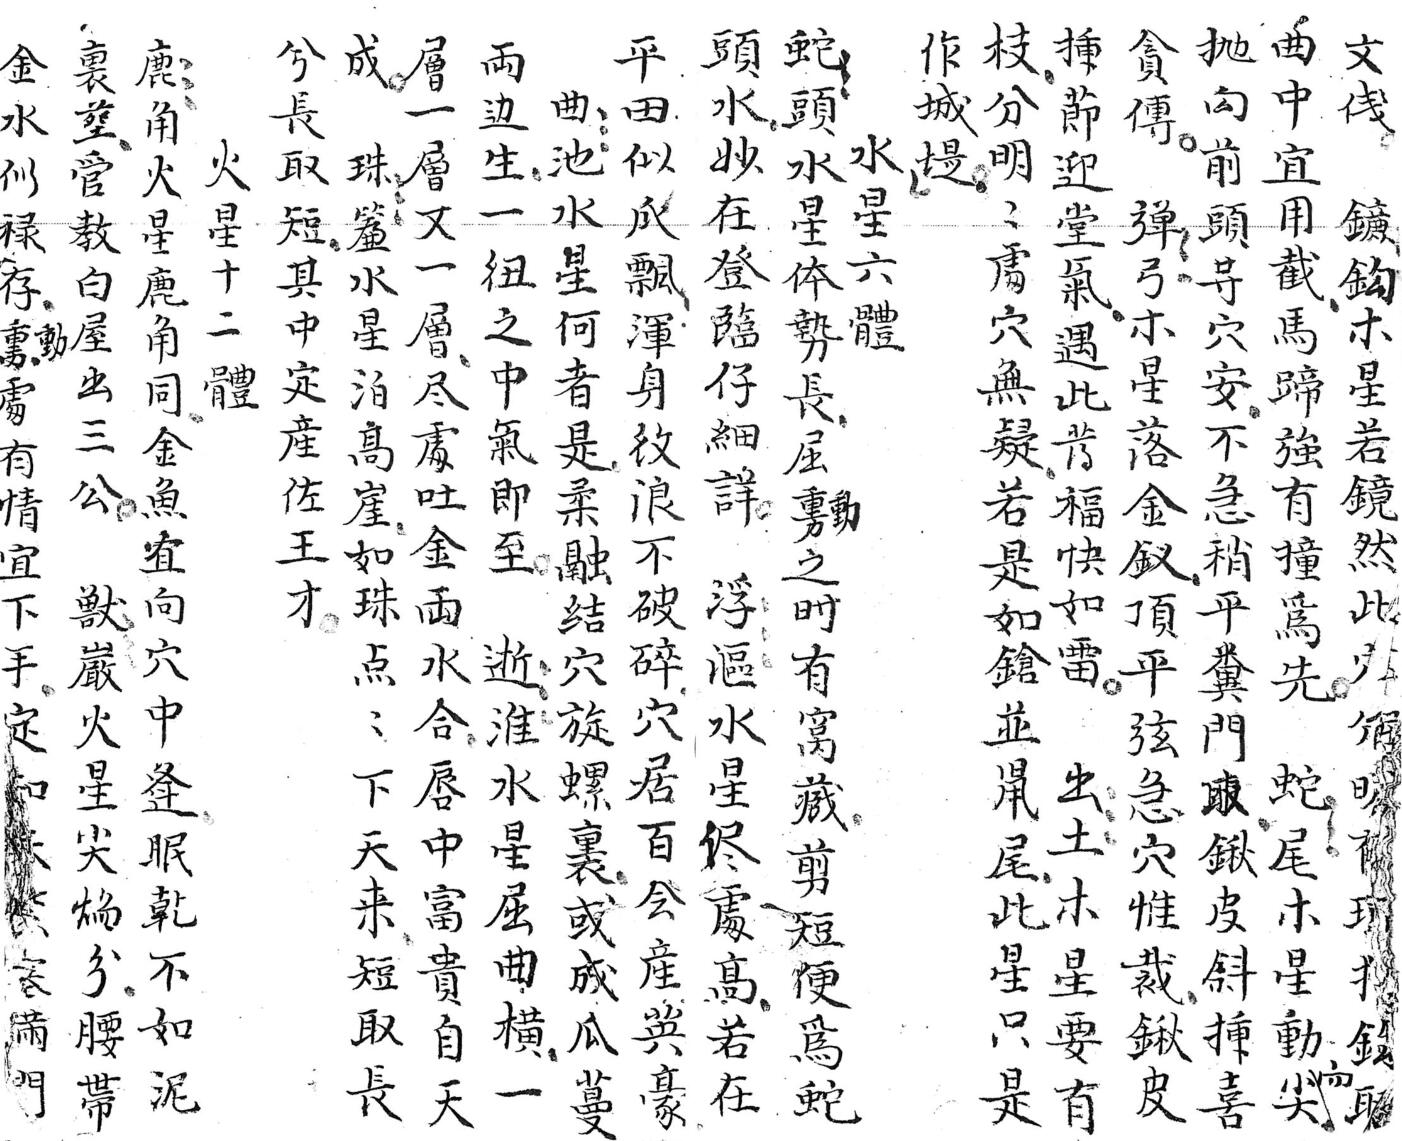 文伐 鐮鈎木星若鏡然此穴
曲中宜用截馬蹄強有撞爲先 蛇尾木星動尖
抛向前頭寻穴安不急稍平糞門取鍬皮斜揷喜
貪傳 弹弓木星落金釵頂平弦急穴惟裁鍬皮
揷節迎堂氣遇此昔福快如雷 出土木星要有
枝分明〻處穴無疑若是如鎗並鼠尾此星只是
作城堤
水星六體
蛇頭水星体勢長屈動之时有窩藏剪短便爲蛇
頭水妙在登臨仔細詳 浮漚水星侭處高若在
平田似瓜瓢渾身紋浪不破碎穴居百会産英豪
曲池水星何者是柔融结穴旋螺裏或成瓜蔓
兩边生一纽之中氣即至 逝淮水星屈曲横一
層一層又一層尽處吐金兩水合唇中富貴自天
成 珠簾水星泊高崖如珠点〻下天来短取長
兮長取短其中定産佐王才
火星十二體
鹿角火星鹿角同金魚宜向穴中逢眠乾不如泥
裏塟管教白屋出三公 獣嚴火星尖焔分腰帶
金水似禄存動處有情宜下手定知 滿門